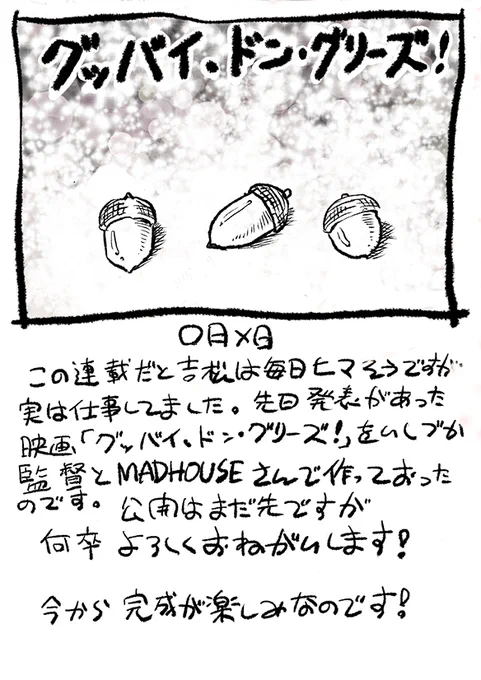 グッバイ、ドン・グリーズ!
〇月×日
この連載だと吉松は毎日ヒマそうですが
実は仕事してました。先日発表があった
映画「グッバイ、ドン・グリーズ!」をいしづか
監督とMADHOUSEさんで作っておった
のです。公開はまだ先ですが
何卒よろしくおねがいします!
今から完成が楽しみなのです!